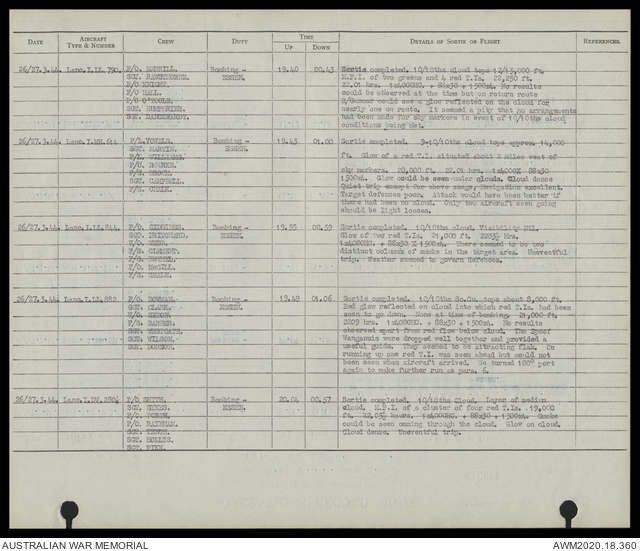 DATE AIRCRAFT TYPE & NUMBER CREW DUTY TIME UP DOWN DETAILS OF SORTIE OR FLIGHT REFERENCES.
26/27.3.44. Lanc.I.LL.790. F/O. MERRILL. Bombing - 19.40 00.43 Sortie completed. 10/10ths cloud tops 12/15,000 ft.
SGT. ESSEN. M.P.I. of two greens and 4 red T.Is. 22,250 ft.
F/O KNIGHT. 22.01 hrs. 1x4000HC. + 88x30 + 1500x4. No results
F/O HALL. could be observed at the time but on return route
F/O R/Gunner could see a glow reflected on the cloud for
SGT. HUMPHRIES. nearly on route. It seemed a pity that no arrangements
SGT. had been made for sky markers in event of 10/10ths cloud
conditions being met.
26/27.3.44. F/L. Bombing - 19.43 01.00 Sortie completed. 9-10/10ths cloud tops approx. 14,000
SGT. MARTIN. ESSEN.
F/L. WILLIAMS. ft. Glow of a red T.I. situated about 2 miles west of
F/S.
F/S. sky markers. 20,000 ft. 22.01 hrs. 1x4000HC 88x30
SGT. CAMPBELL. 1500x4. Glow could be seen under clouds. Cloud dense
F/S. Quiet trip except for above Navigation excellent.
Target defences poor. Attack would have been better if
there had been no cloud. Only two aircraft seen going
should be light losses.
26/27.3.44. Lanc.I.LL.844. F/O. GIDDINGS. Bombing - 19.55 00.59 Sortie completed. 10/10ths cloud. Visibility Nil.
SGT. PRITCHARD. ESSEN. Glow of two red T.Is. 21,000 ft. 2203½ Hrs.
1x4000HC. + 88x30 X 1500x4. There seemed to be two
F/S. CLEMENT. distinct columns of smoke in the target area. Uneventful
F/S. trip. Weather seemed to govern defences.
F/O. McGILL.
F/S.
26/27.3.44. Lanc.I.LL.882. F/O. BOWMAN. Bombing - 19.49 01.06 Sortie completed. 10/10ths Sc.Cu. tops about 8,000 ft.
SGT. CLARK. ESSEN. Red glow reflected on cloud into which red T.Is. had been
seen to go down. None at time of bombing. 21,000 ft.
F/S. 2209 hrs. 1x4000HC. + 88x30 + 1500x4. No results
SGT. observed apart from red flow below cloud. The Spoof
SGT. WILSON. Wanganuis were dropped well together and provided a
SGT. useful guide. They seemed to be attracting flak. On
running up one red T.I. was seen ahead but could not
been seen when aircraft arrived. We turned 180° port
again to make further run as para. 6.
26/27.3.44. P/O SMITH. Bombing - 20.04 00.57 Sortie completed. 10/10ths Cloud. Layer of medium
SGT. ESSEN. cloud. M.P.I. of a cluster of four red T.Is. 19,000
ft. 22.05½ hours. 1x4000HC. + 88x30 + 1500x4. Smoke
F/O. could be seen coming through the cloud. Glow on cloud.
SGT. Cloud dense. Uneventful trip.
SGT. HOLLIS.
SGT.
AUSTRALIAN WAR MEMORIAL AWM2020.18.360